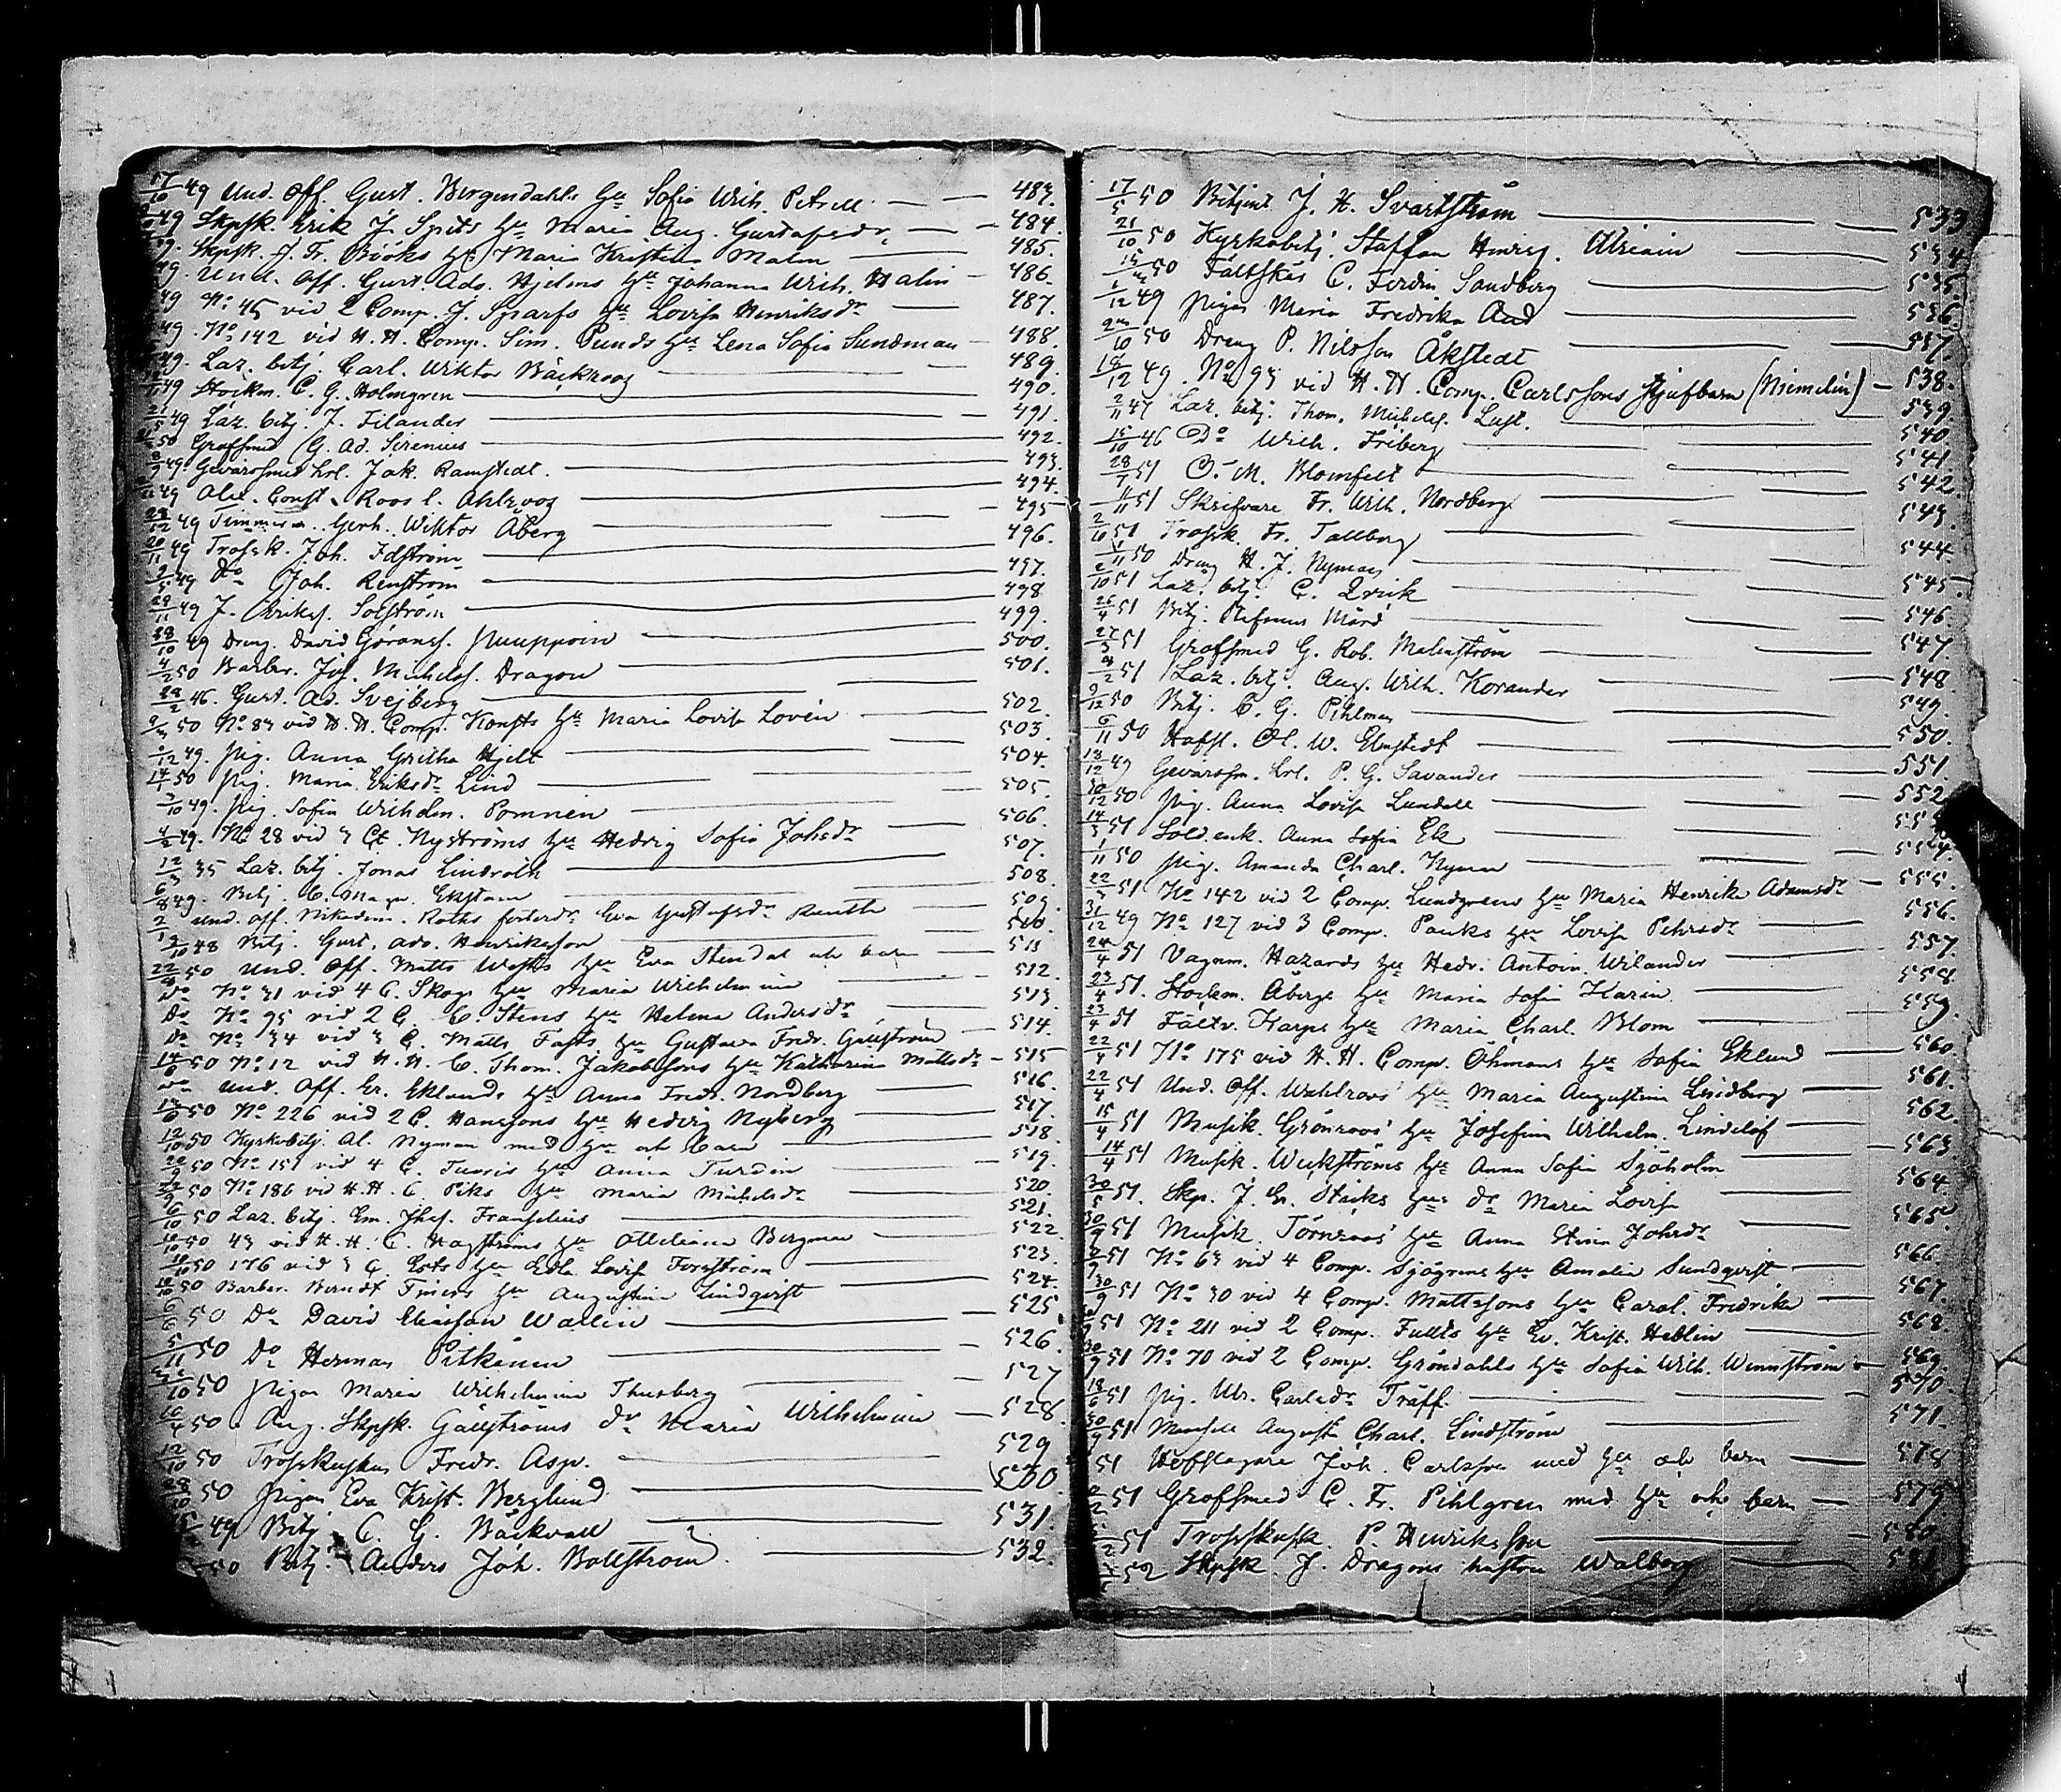 17/10 49 Und. Off. Gust. Bergendahls Hu Sofia Wilh. Petrell — 483.
49 Skpsk. Erik J. Spets Hu Maria Aug. Gustafsdr — 484.
Skpsk. J. Fr. Hu Maria Kristina Malm — 485.
49. Und. Off. Gust. Ado. Hjelms Hu Johanna Wilh. Halin — 486.
49 No 45 vid 2 Comp. J. Sparfs Hu Lovisa Henriksdr — 487.
49. No 142 vid H. H. Comp. Sim. Punds Hu Lena Sofia Sundman — 488.
49. Laz. betj. Carl. Wiktor Bäckroos — 489.
49 Stockm. C. G. Holmgren — 490.
49 Laz. betj. J. Filander — 491.
50 Grofsmed G. Ad. Sirenius — 492.
49. Gevärssmed lrl. Jak. Ramstedt. — 493.
49 Alex. Const. Roos l. Ahlroos — 494.
28/12 49 Timmerm. Gerh. Wiktor Åberg — 495
20/11 49 Trossk. Joh. Idström — 496.
49 Do Joh. Renström — 497.
29/11 49 J. Eriks. Solström — 498
49 Dreng David Görans. — 499.
4/2 50 Barber. Jos. Michels. Dragon — 500.
46. Gust. Ad. Svejberg — 501.
50 No 83 vid H. H. Comp. Konsts Hu Maria Lovisa Lovén — 502.
49. Pig. Anna Gretha Hjelt — 503.
14/1 50 Pig. Maria Eriksdr Lind — 504.
3/10 49. Pig. Sofia Wilhelm. Pomnén — 505.
49. No 28 vid 3 Ct. Nyströms Hu Hedvig Sofia Johsdr — 506.
12/3 35 Laz. betj. Jonas Lindroth — 507.
6/8 49. Betj. C. Magn. Ekstam — 508.
2/1 Und. Off. Nikodem. Roths Eva Gustafsdr — 509.
3/10 48 Betj. Gust. Ado. Henriksson — 510.
22/ 50 Und. Off. Matts Wests Hu Eva Stendal och barn — 511
Do No 31 vid 4 C. Skogs Hu Maria Wilhelmina — 512.
Do No 95 vid 2 C. C. Stens Hu Helena Andersdr — 513.
Do No 34 vid 3 C. Matts Fasts Hu Gustava Fredr. Gällström — 514.
14/6 50 No 12 vid H. H. C. Thom. Jakobssons Hu Katharina Mattsdr — 515
Do Und. Off. Er. Eklunds Hu Anna Fredr. Nordberg — 516.
50 No 226 vid 2 C. Hanssons Hu Hedvig Nyberg — 517.
12/10 50 Kyrkobetj. Al. Nyman med Hu och barn — 518.
20/9 50 No 151 vid 4 C. Tuoris Hu Anna Turdin — 519.
50 No 186 vid H. H. C. Piks Hu Maria Michelsdr — 520.
50 Laz. betj. Em. Jhes. Franselius — 521.
50 43 vid H. H. C. Hagströms Hu Ottiliana Bergman — 522.
50 176 vid 3 C. Ests Hu Edla Lovisa Forsström — 523.
50 Barber. Berndt Finers Hu Augustina Lindqvist — 524.
50 Do David Eliasson Wallin — 525
5/11 50 Do Herman Pitkänen — 526.
50 Pigan Maria Wilhelmina Thusberg — 527
50. Aug. Skpsk. Gällströms dr Maria Wilhelmina — 528.
12/10 50 Trosskusken Fredr. Asp. — 529
50 Pigan Eva Krist. Berglund — 530.
49 Betj. C. G. Bäckvall — 531.
50 Betj. Anders Joh. Bollström — 532.
17/5 50 Betjent J. H. Svartström — 533
21/10 50 Kyrkobetj. Staffan Henrs. — 534
50 Fältskär C. Ferdin Sandberg — 535
1/12 49 Pigan Maria Fredrika — 536.
50 Dreng P. Nilsson Åkstedt — 537.
18/12 49. No 93 vid H. H. Comp. Carlssons Stjufbarn (Niemelin) — 538.
2/11 47 Laz. betj. Thom. Michels. Lust. — 539.
15/10 46 Do Wilh. Friberg — 540
28/7 51 O. M. Blomfelt — 541.
11/11 51 Skrifvare Fr. Wilh. Nordberg — 542
2/10 51 Trossk. Fr. Tallberg — 543.
1/11 50 Dreng H. J. Nyman — 544.
2/10 51 Laz. betj. C. Qvick — 545.
26/4 51 Betj. Stefanus Mård — 546.
27/3 51 Grofsmed G. Rob. Malmström — 547.
51 Laz. betj. Aug. Wilh. Korander — 548.
9/12 50 Betj. C. G. Pihlman — 549.
6/11 50 Hofsl. Ol. W. Elmstedt — 550.
13/12 49 Gevärssm. lrl. P. G. Savander — 551.
30/12 50 Pig. Anna Lovisa Lundell — 552.
14/3 51 Sold. enk. Anna Sofia Ek — 553
1/11 50 Pig. Amanda Charl. Nyman — 554.
22/3 51 No 142 vid 2 Comp. Lundgrens Hu Maria Henrika Adamsdr — 555.
31/12 49 No 127 vid 3 Comp. Pauks Hu Lovisa Pehrsdr — 556.
24/4 51 Vagnm. Hazards Hu Hedv. Antoin. Wilander — 557.
23/4 51. Stockm. Åbergs Hu Maria Sofia Karin — 558.
23/4 51 Fältv. Harps Hu Maria Charl. Blom — 559.
22/4 51 No 175 vid H. H. Comp. Öhmans Hu Sofia Eklund — 560.
22/4 51 Und. Off. Wahlroos' Hu Maria Augustina Lindberg — 561.
15/4 51 Musik. Grönroos' Hu Josefina Wilhelm. Lindelöf — 562.
14/4 51 Musik. Weckströms Hu Anna Sofia Sjöholm — 563.
30/5 51. Skp. J. Er. Starks Hus dr Maria Lovisa — 564
30/9 51 Musik. Törnroos' Hu Anna Stina Johsdr — 565.
51 No 63 vid 4 Comp. Sjögrens Hu Amalia Sundqvist — 566.
30/9 51 No 30 vid 4 Comp. Mattssons Hu Carol. Fredrika — 567.
51 No 211 vid 2 Comp. Fullts Hu Ev. Krist. Hedlin — 568.
30/9 51 No 70 vid 2 Comp. Gröndahls Hu Sofia Wilh. Wennström — 569.
18/6 51 Pig. Ulr. Carlsdr Träff. — 570.
51 Mamsell Augusta Charl. Lindström — 571.
51 Hofslagare Joh. Carlsson med Hu och barn — 578
51 Grofsmed C. Fr. Pihlgren med Hu och barn — 579.
51 Trosskusk. P. Henriksson — 580.
52 Skpsk. J. Dragons hustru Walborg — 581